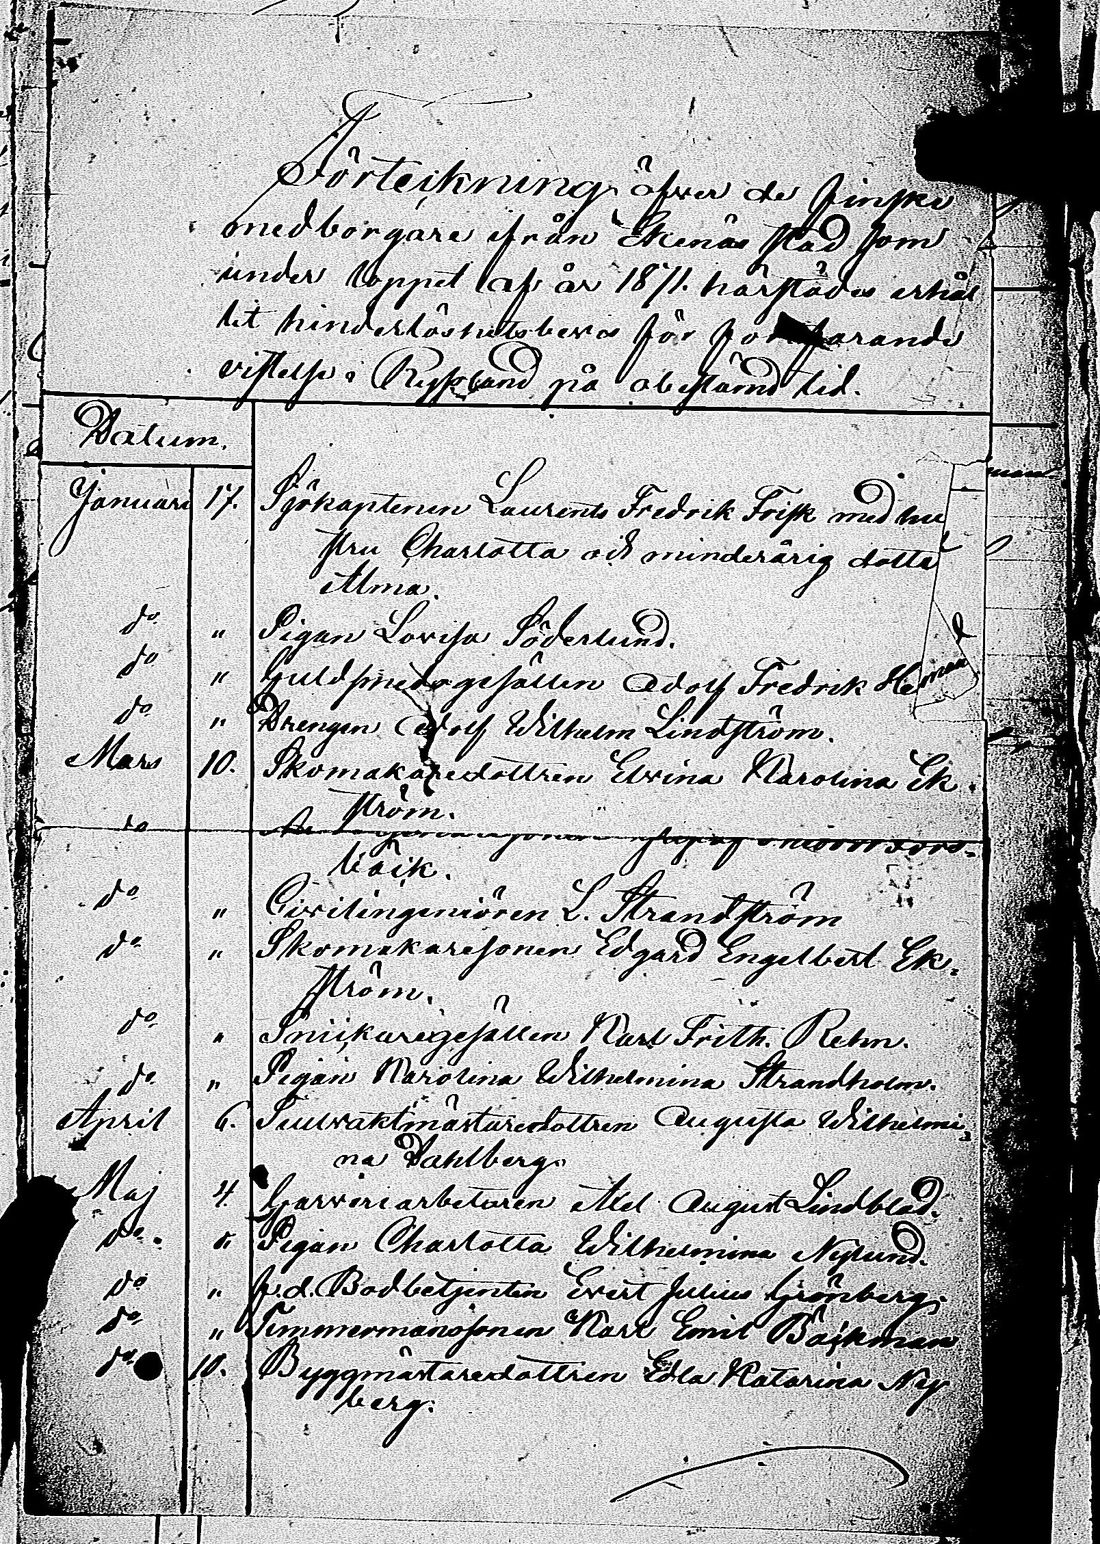 Förteckning öfver de finske
medborgare ifrån Ekenäs stad som
under loppet af år 1871. härstädes erhål
lit hinderlöshetsbevis för fortfarande
vistelse i Ryssland på obestämd tid.
Datum.
Januari 17. Sjökaptenen Laurents Fredrik Frisk med hu
stru Charlotta och minderårig dotter
Alma.
do " Pigan Lovisa Söderlund.
do " Guldsmedsgesällen Adolf Fredrik
do " Drengen Adolf Wilhelm Lindström.
Mars 10. Skomakaredottren Elvina Karolina Ek
ström.
do
bäck.
do " Civilingeniören L. Strandström
do " Skomakaresonen Edgard Engelbert Ek-
ström.
do " Snickaregesällen Karl Frith. Rehn.
do " Pigan Karolina Wilhelmina Strandholm.
April 6. Tullvaktmästaredottren Augusta Wilhelmi-
na Dahlberg.
Maj 4. Garfveriarbetaren Abel August Lindblad.
do " Pigan Charlotta Wilhelmina Nylund.
do " f.d. Bodbetjenten Evert Julius Grönberg.
do " Timmermanssonen Karl Emil Bäckman
do 10. Byggmästaredottren Edla Katarina Ny
berg.